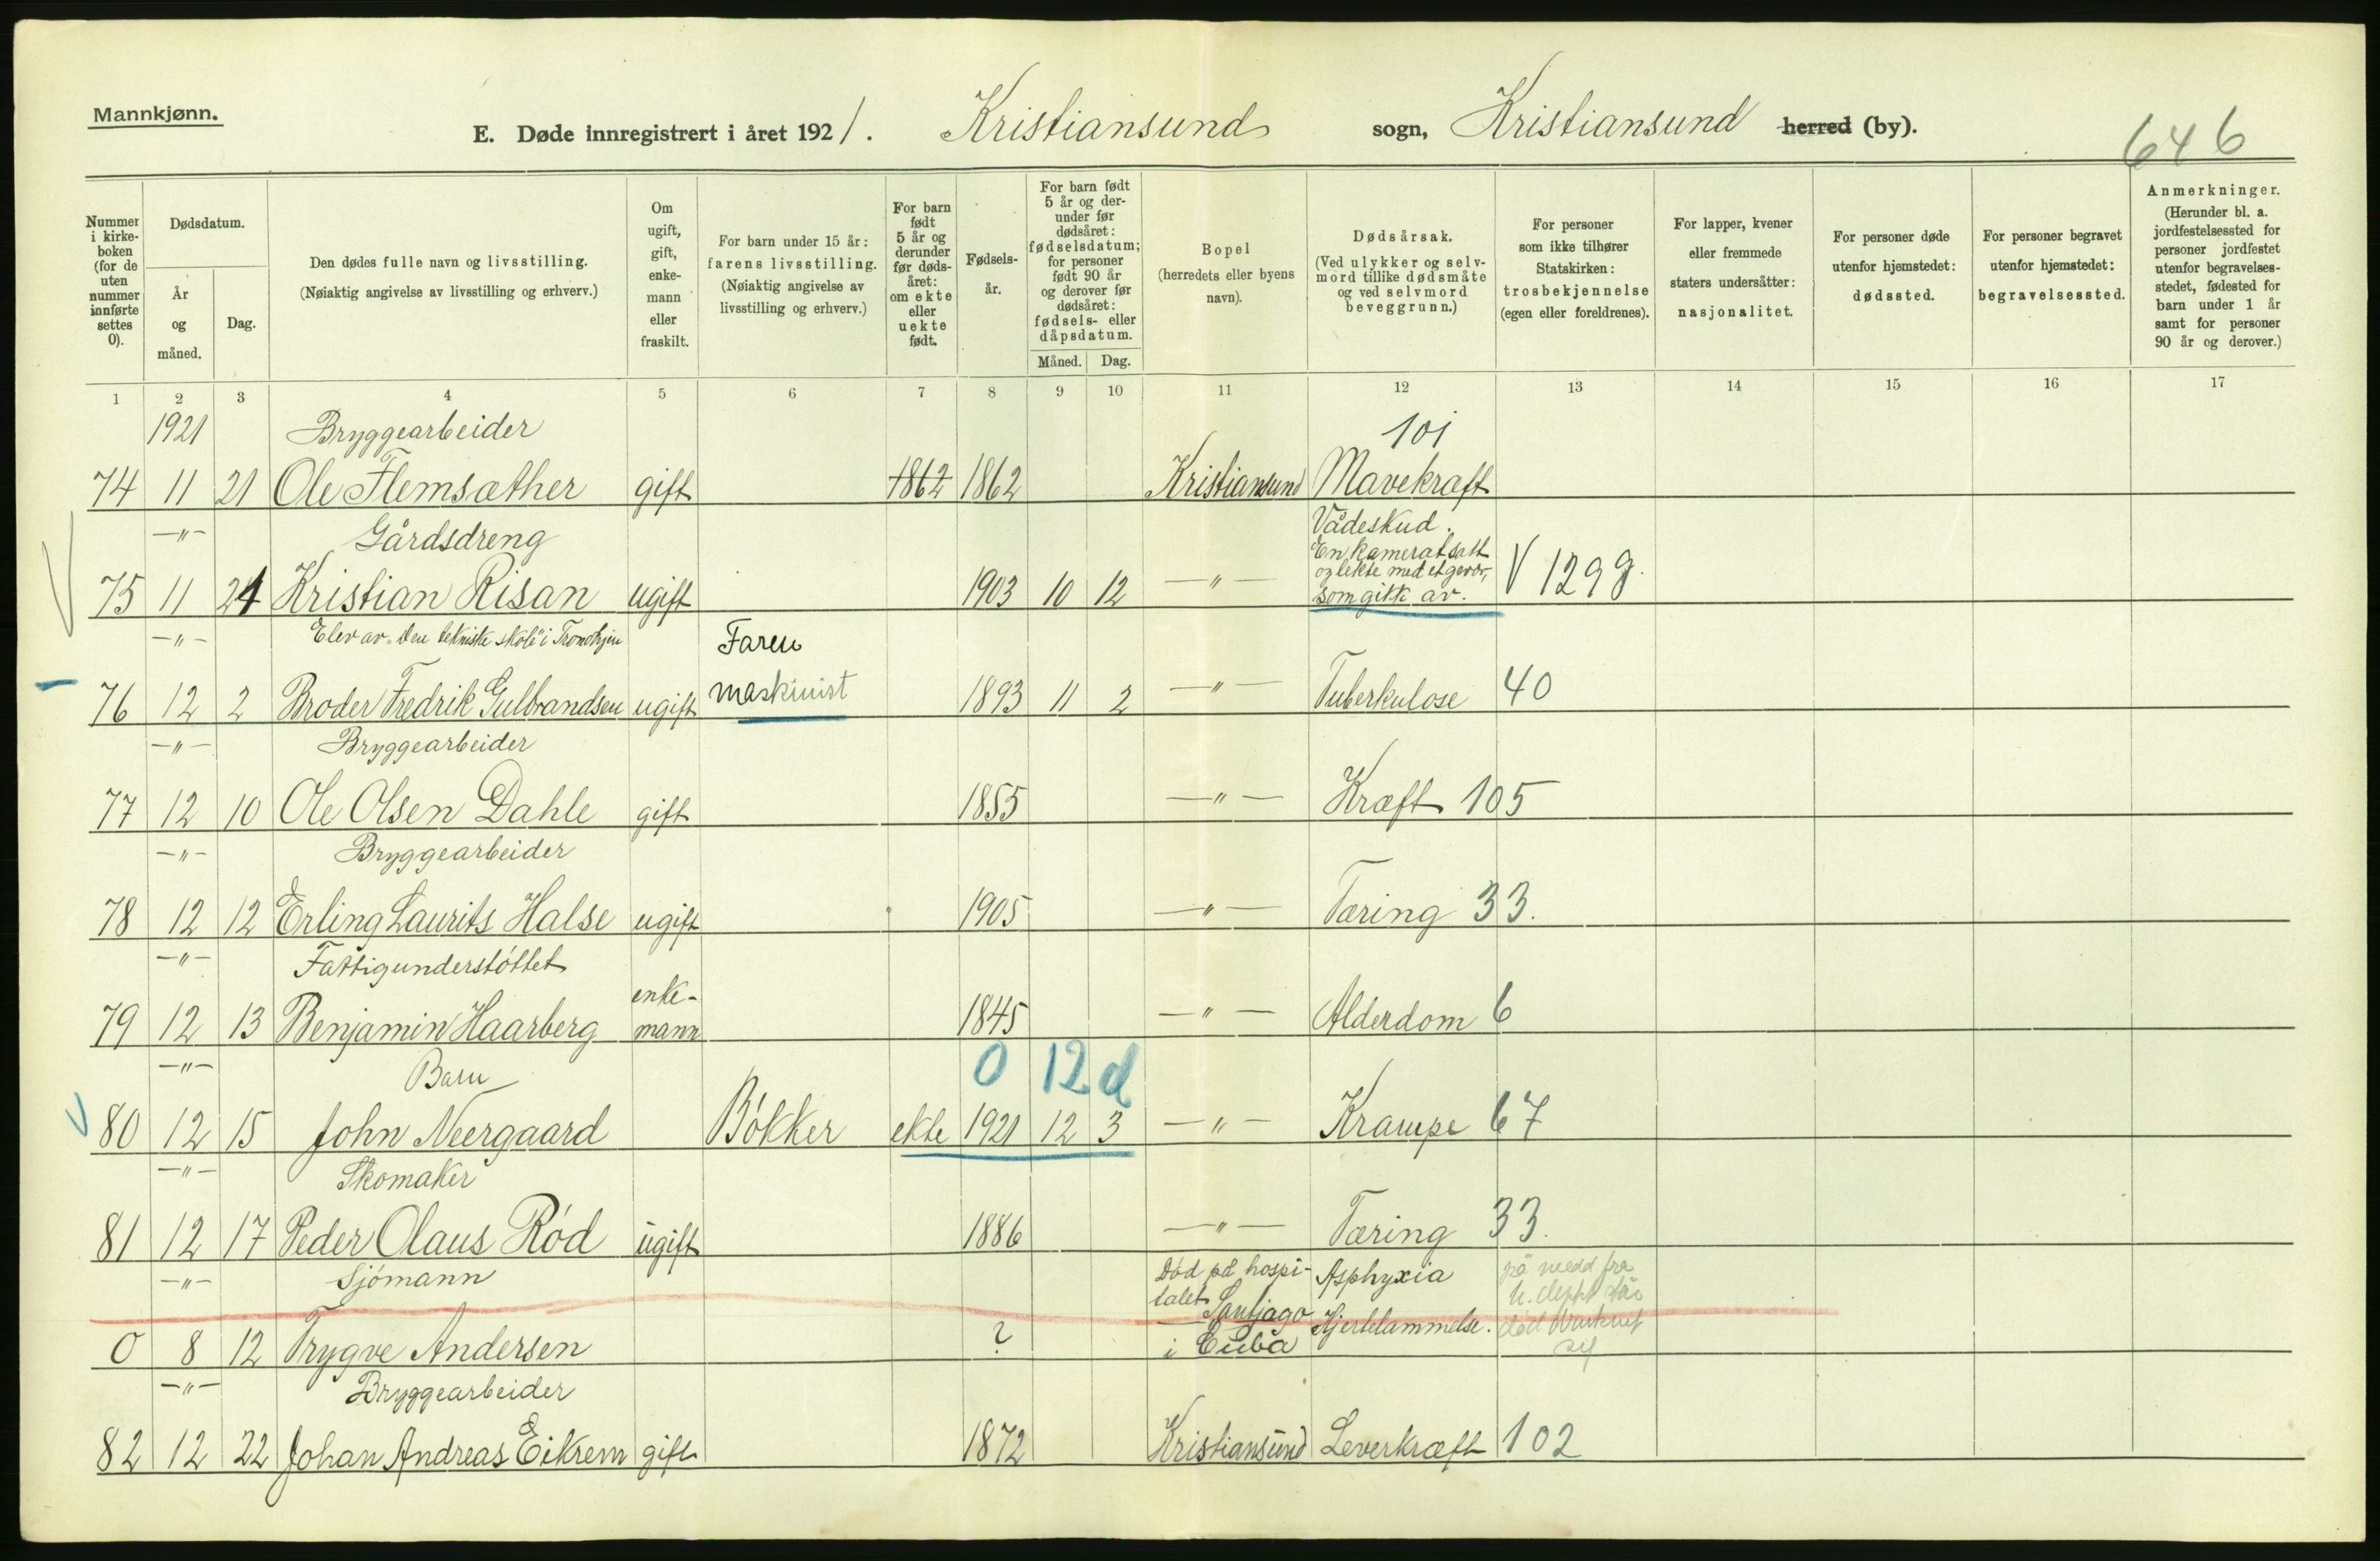 Mannkjønn.
E. Døde innregistrert i året 1921. Kristiansund sogn, Kristiansund herred (by).
646
Nummer i kirke-boken (for de uten nummer innførte settes 0).
Dødsdatum.
År og måned.
Dag.
Den dødes fulle navn og livsstilling.
(Nøiaktig angivelse av livsstilling og erhverv.)
Om ugift, gift, enke-mann eller fraskilt.
For barn under 15 år: farens livsstilling.
(Nøiaktig angivelse av livsstilling og erhverv.)
For barn født 5 år og derunder før døds-året: om ekte eller uekte født.
Fødsels-år.
For barn født 5 år og der-under før dødsåret: fødselsdatum; for personer født 90 år og derover før dødsåret: fødsels- eller dåpsdatum.
Måned. Dag.
Bopel (herredets eller byens navn).
Dødsårsak.
(Ved ulykker og selv-mord tillike dødsmåte og ved selvmord beveggrunn.)
For personer som ikke tilhører Statskirken: trosbekjennelse (egen eller foreldrenes).
For lapper, kvener eller fremmede staters undersåtter: nasjonalitet.
For personer døde utenfor hjemstedet: dødssted.
For personer begravet utenfor hjemstedet: begravelsessted.
Anmerkninger.
(Herunder bl. a. jordfestelsessted for personer jordfestet utenfor begravelses-stedet, fødested for barn under 1 år samt for personer 90 år og derover.)
1 2 3 4 5 6 7 8 9 10 11 12 13 14 15 16 17
1921 Bryggearbeider 101
74 11 21 Ole Flemsæther gift 1862 1862 Kristiansund Mavekræft
—"— Gårdsdreng Vådeskud.
En kamerat satt
og lekte med et gevær,
75 11 24 Kristian Risan ugift 1903 10 12 —"— som gikk av. V 129 g.
—"— Elev av "Den tekniske skole" i Trondhjem Faren
76 12 2 Broder Fredrik Gulbrandsen ugift maskinist 1893 11 2 —"— Tuberkulose 40
—"— Bryggearbeider
77 12 10 Ole Olsen Dahle gift 1855 —"— Kræft 105
—"— Bryggearbeider
78 12 12 Erling Laurits Halse ugift 1905 —"— Tæring 33.
—"— Fattigunderstöttet
79 12 13 Benjamin Haarberg enke-mann 1845 —"— Alderdom 6
—"— Barn 0 12 d
80 12 15 John Neergaard Bökker ekte 1921 12 3 —"— Krampe 67
—"— Skomaker
81 12 17 Peder Olaus Röd ugift 1886 —"— Tæring 33.
—"— Sjömann Död på hospi- Asphyxia på medd fra
talet Santjago Hjertelammelse.
0 8 12 Trygve Andersen ? i Cuba
—"— Bryggearbeider
82 12 22 Johan Andreas Eikrem gift 1872 Kristiansund Leverkræft 102